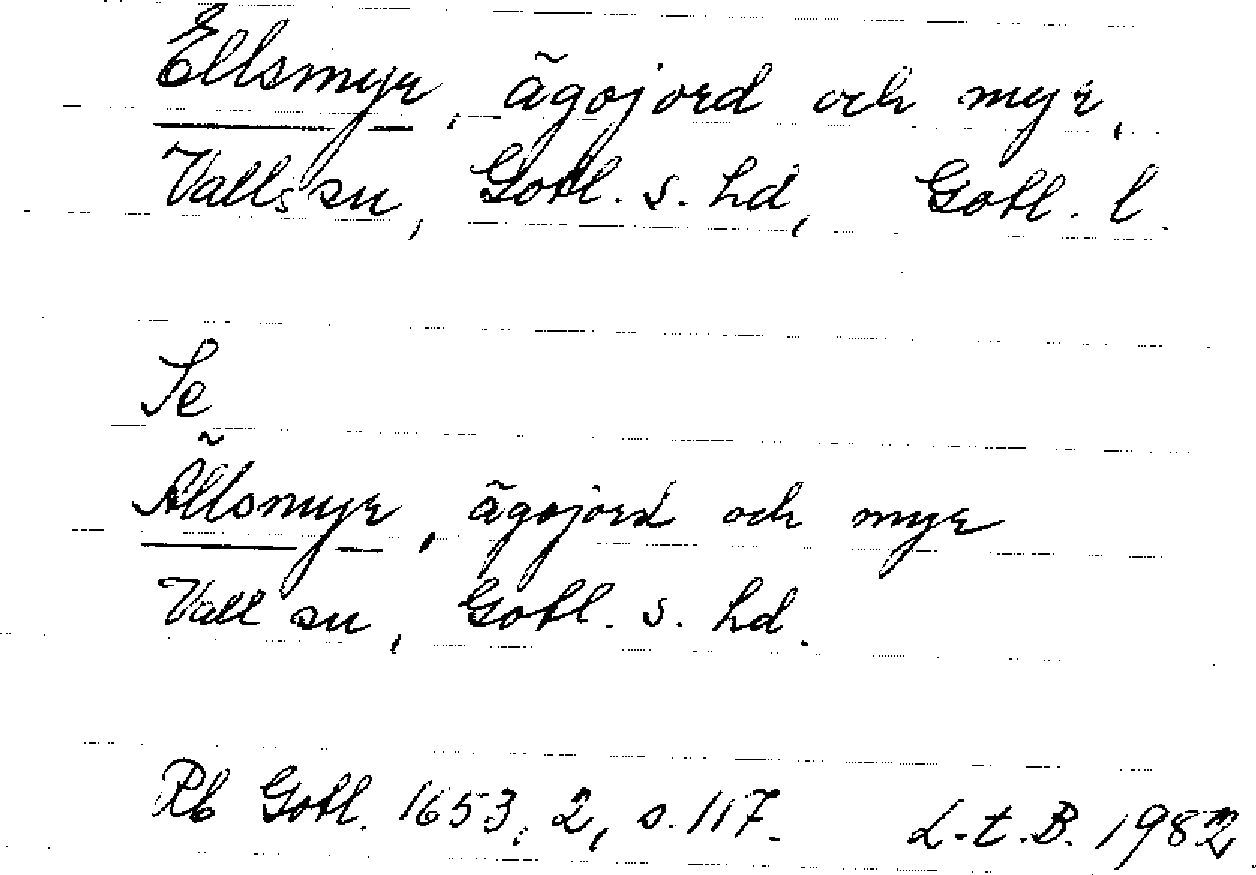 Ellsmyr, ägojord och myr,
Valls sn, Gotl. s. hd, Gotl. l.
Se
Ällsmyr, ägojord och myr
Vall sn, Gotl. s. hd.
Rb Gotl. 1653, 2, s. 117. L.t.B. 1982